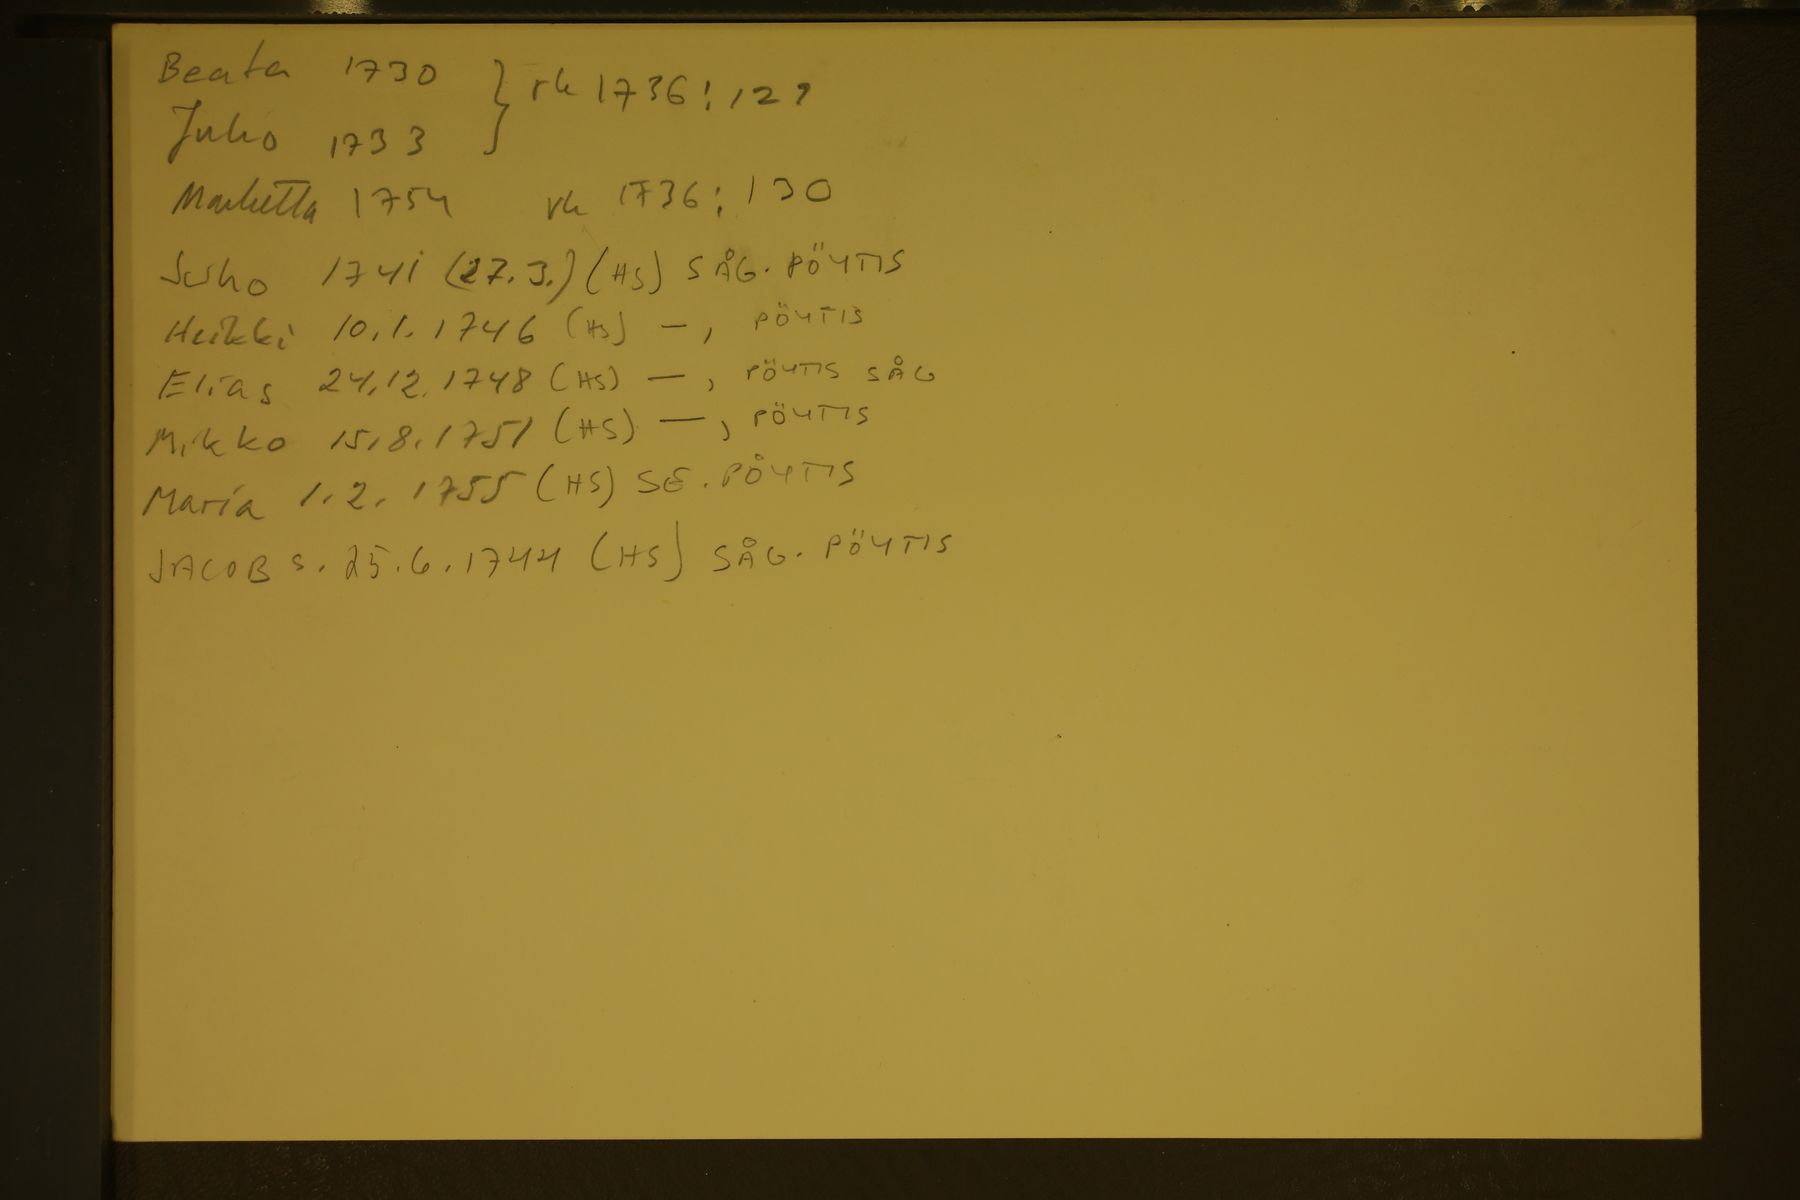 Beata 1730 } rk 1736: 129
Juho 1733
Marketta 1754 rk 1736: 130
Juho 1741 (27.3.) (HS) SÅG. PÖYTIS
Heikki 10.1.1746 (HS) —, PÖYTIS
Elias 24.12.1748 (HS) —, PÖYTIS SÅG
Mikko 15.8.1751 (HS) —, PÖYTIS
Maria 1.2.1755 (HS) SE. PÖYTIS
JACOB s. 25.6.1744 (HS) SÅG. PÖYTIS